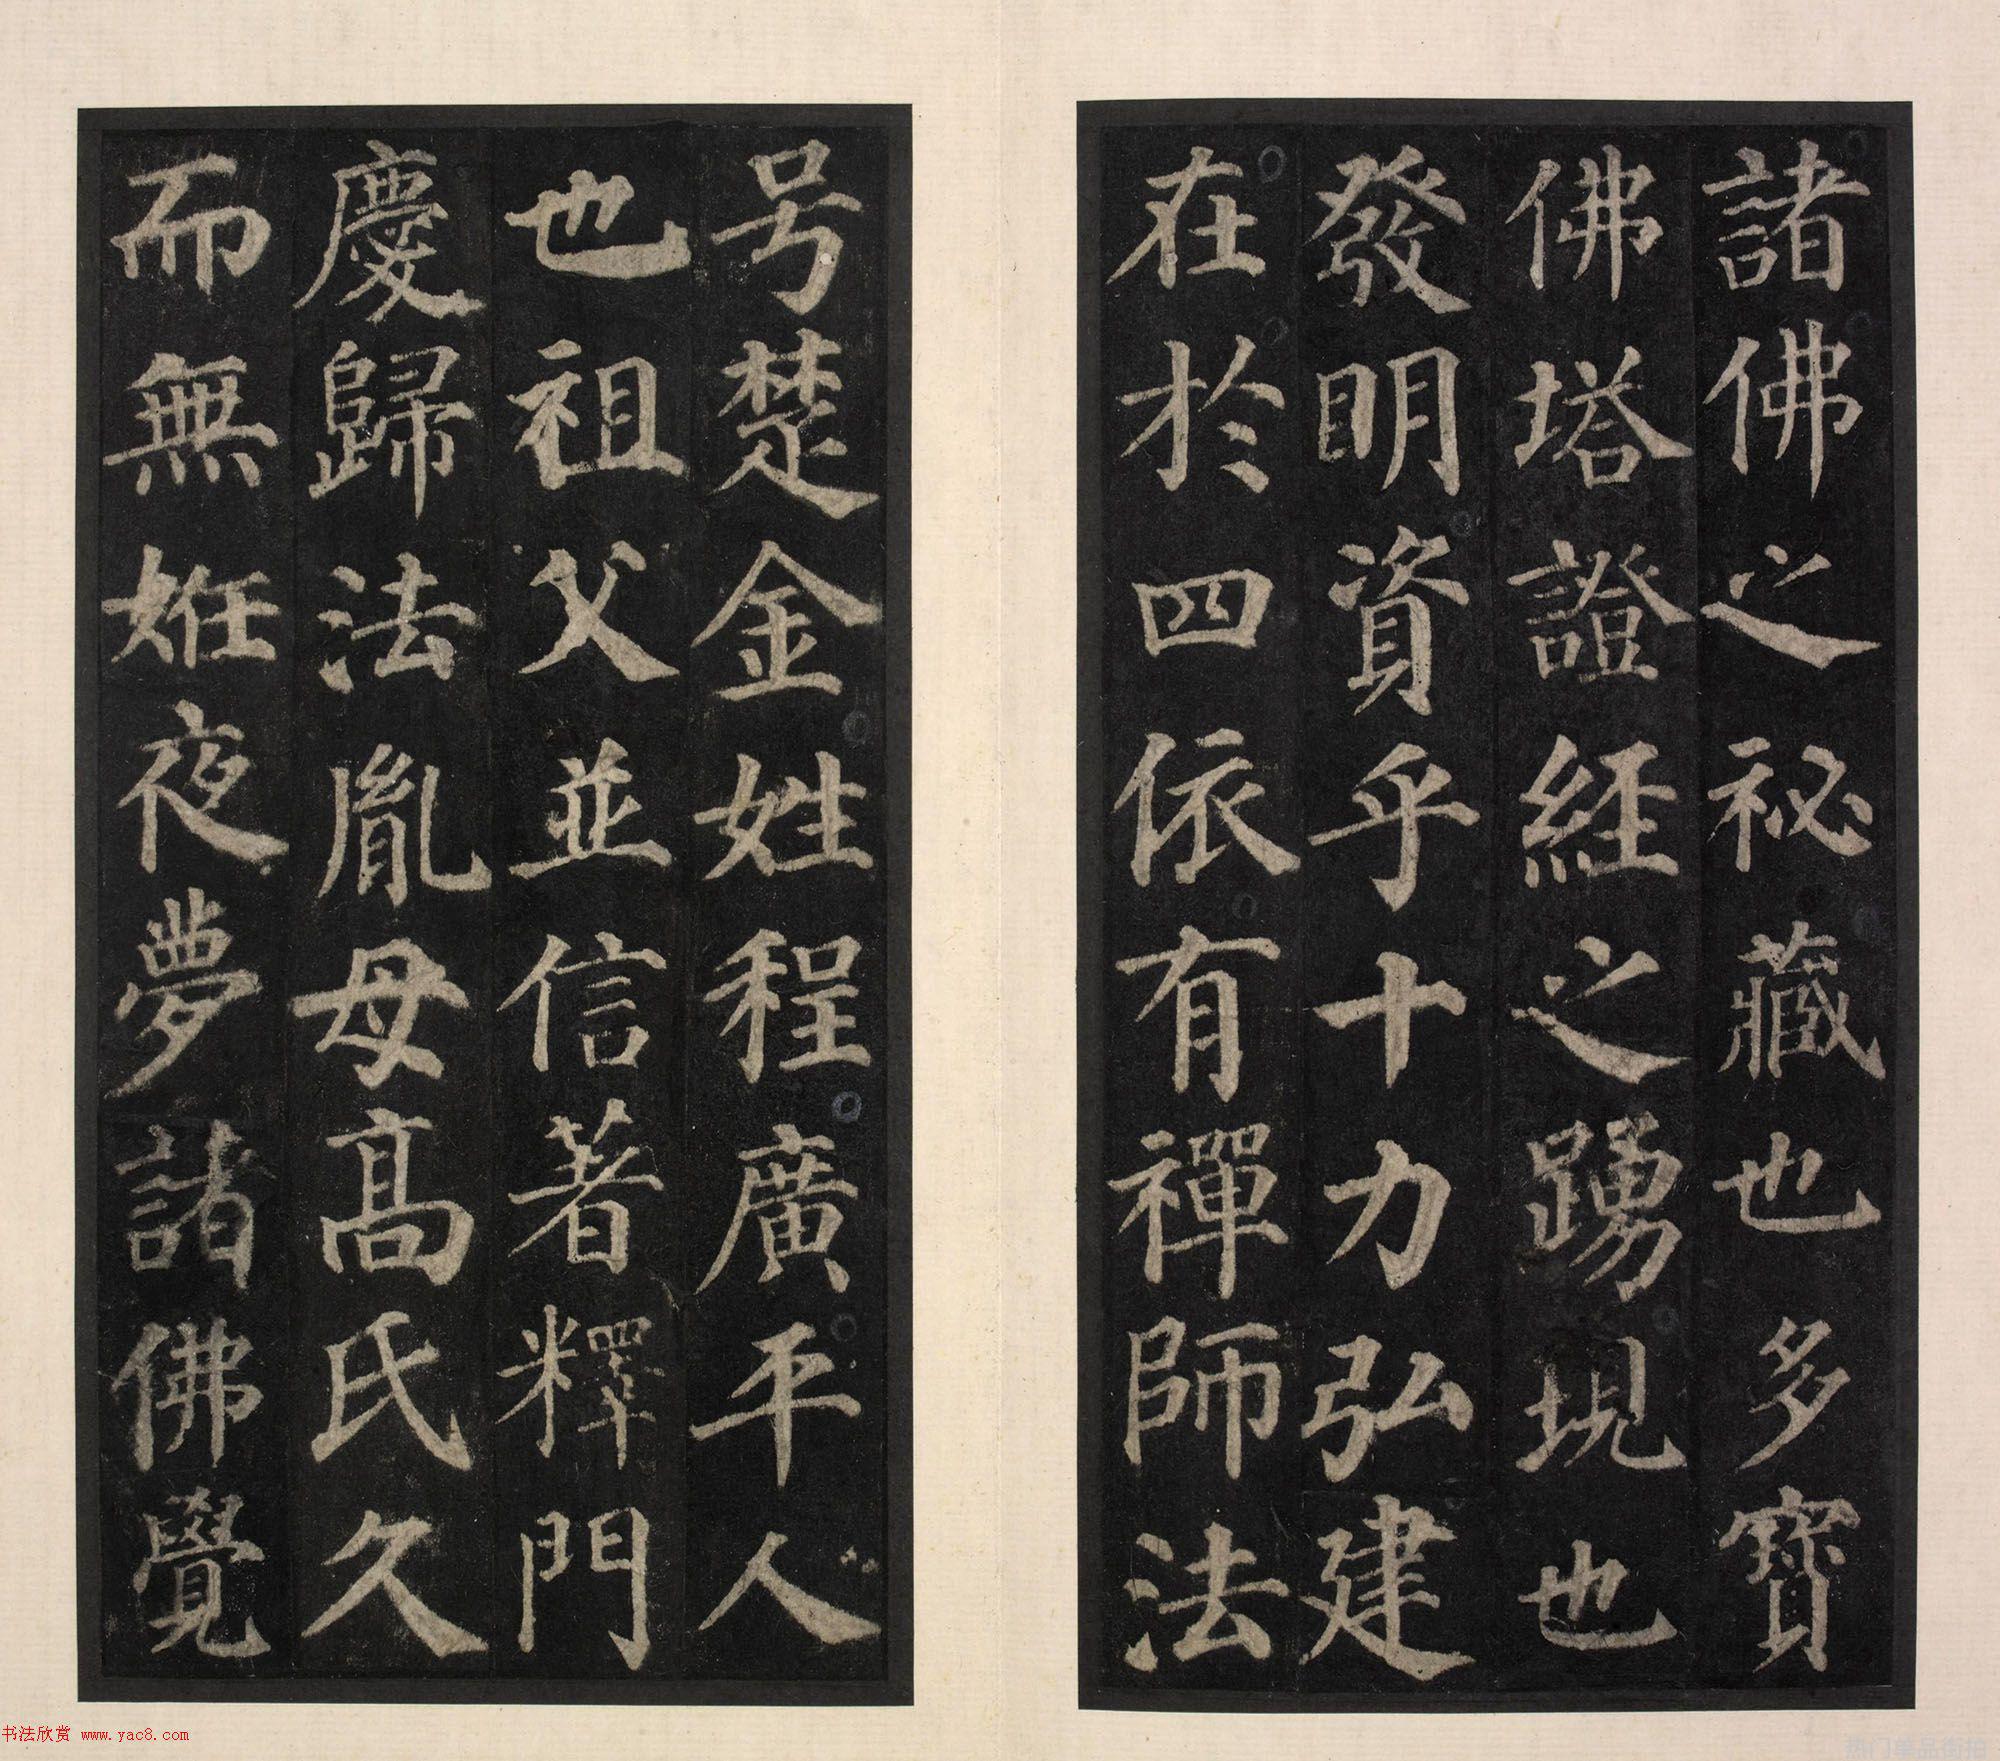 諸佛之祕藏也多寶
佛塔證經之踴現也
發明資乎十力弘建
在於四依有禪師法
号楚金姓程廣平人
也祖父並信著釋門
慶歸法胤母高氏久
而無姙夜夢諸佛覺
书法欣赏 www.yac8.com